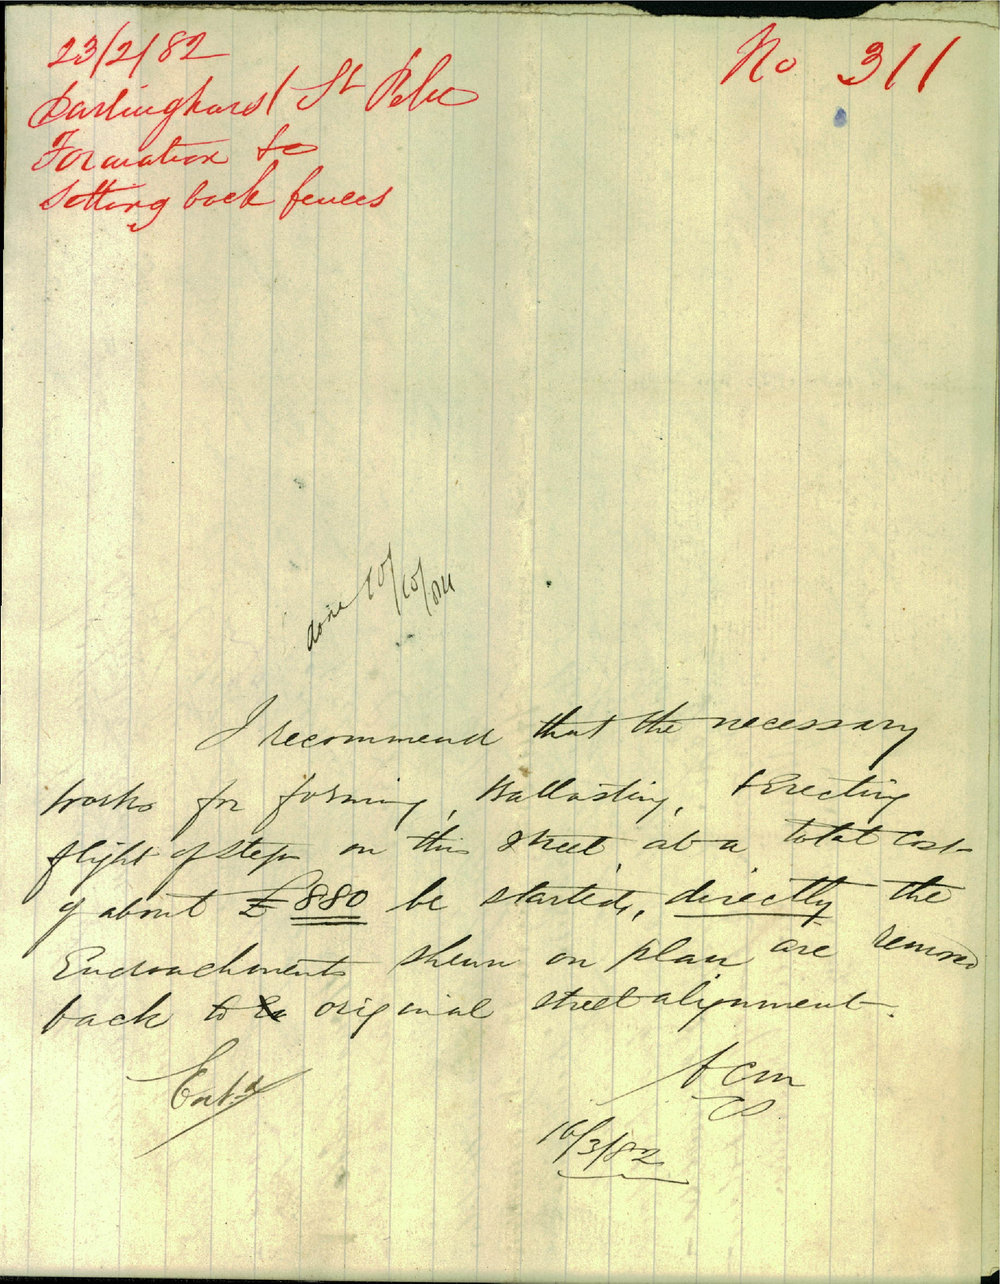 23/2/82
No 311
Darlinghurst St
Formation &c
Setting back fences
done 10/10/84
I recommend that the necessary
works for forming, Ballasting, & Erecting
flight of steps on this Street, at a total cost
of about £880 be started, directly the
Encroachments shewn on plan are removed
back to original street alignment.
Entd
16/3/82